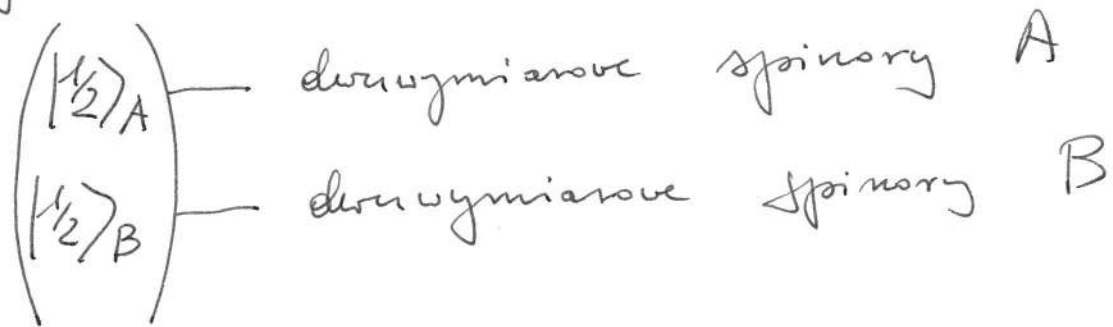 |1/2⟩A — dwuwymiarowe spinory A
|1/2⟩B — dwuwymiarowe spinory B